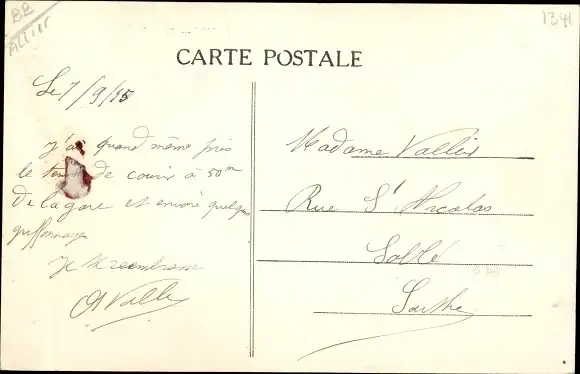 BB
ALLIER
1341
CARTE POSTALE
Le 7/9/15
J'ai quand même pris
le de courir à 50m
De la gare et envoie quelques
griffonnages
Je
AVallé
Madame
Rue St Nicolas
Sablé
Sarthe